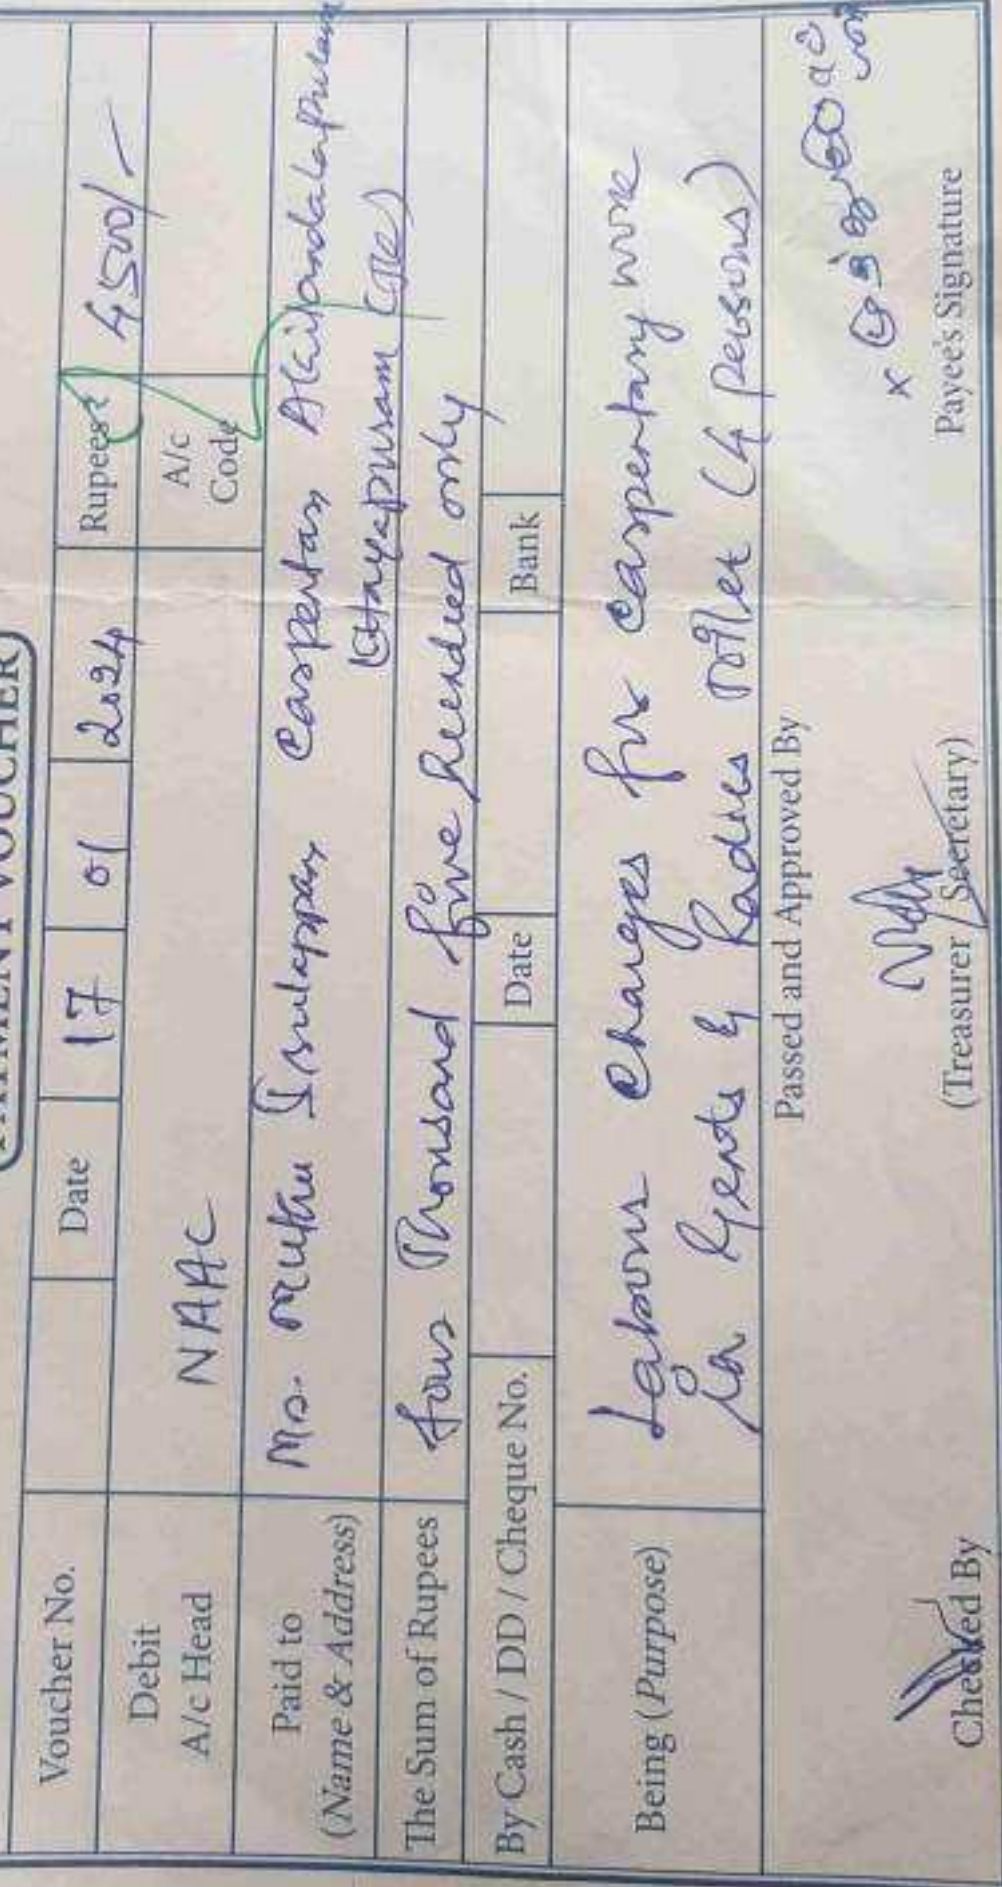 PAYMENT VOUCHER
Voucher No. Date 17 01 2024 Rupees 4500/-
Debit A/c Head NAAC A/c Code
Paid to (Name & Address) Mr. Muthu Irulappan Carpentar
The Sum of Rupees four Thousand five hundred only
By Cash / DD / Cheque No. Date Bank
Being (Purpose) Labour charges for carpentary work
in Gents & Ladies toilet (4 persons)
Passed and Approved By
Checked By (Treasurer / Secretary) Payee's Signature